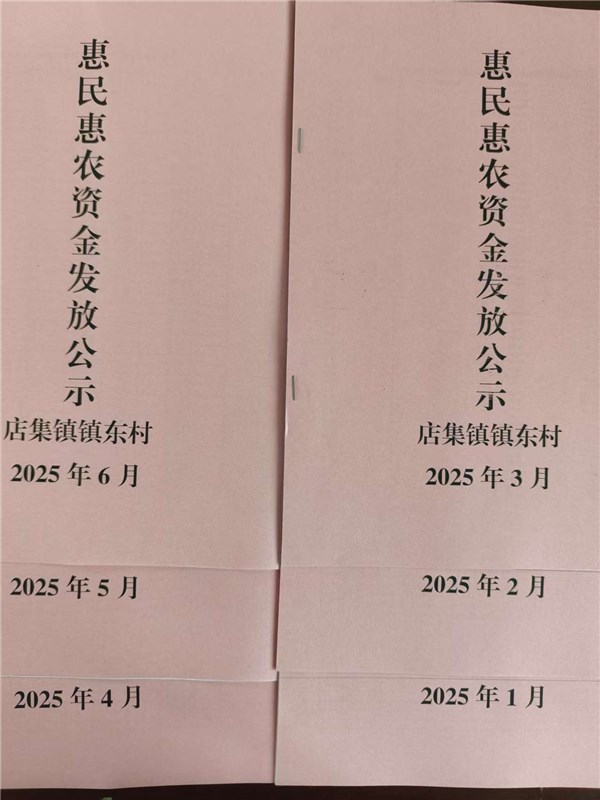 惠民惠农资金发放公示
店集镇镇东村
2025年6月
2025年5月
2025年4月
惠民惠农资金发放公示
店集镇镇东村
2025年3月
2025年2月
2025年1月